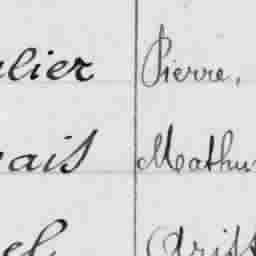 lier Pierre,
ais Mathu
el Arist